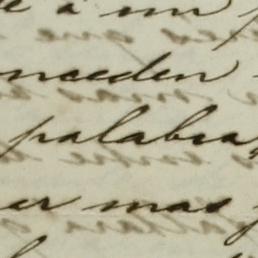 a un
nceden
palabra
er mas